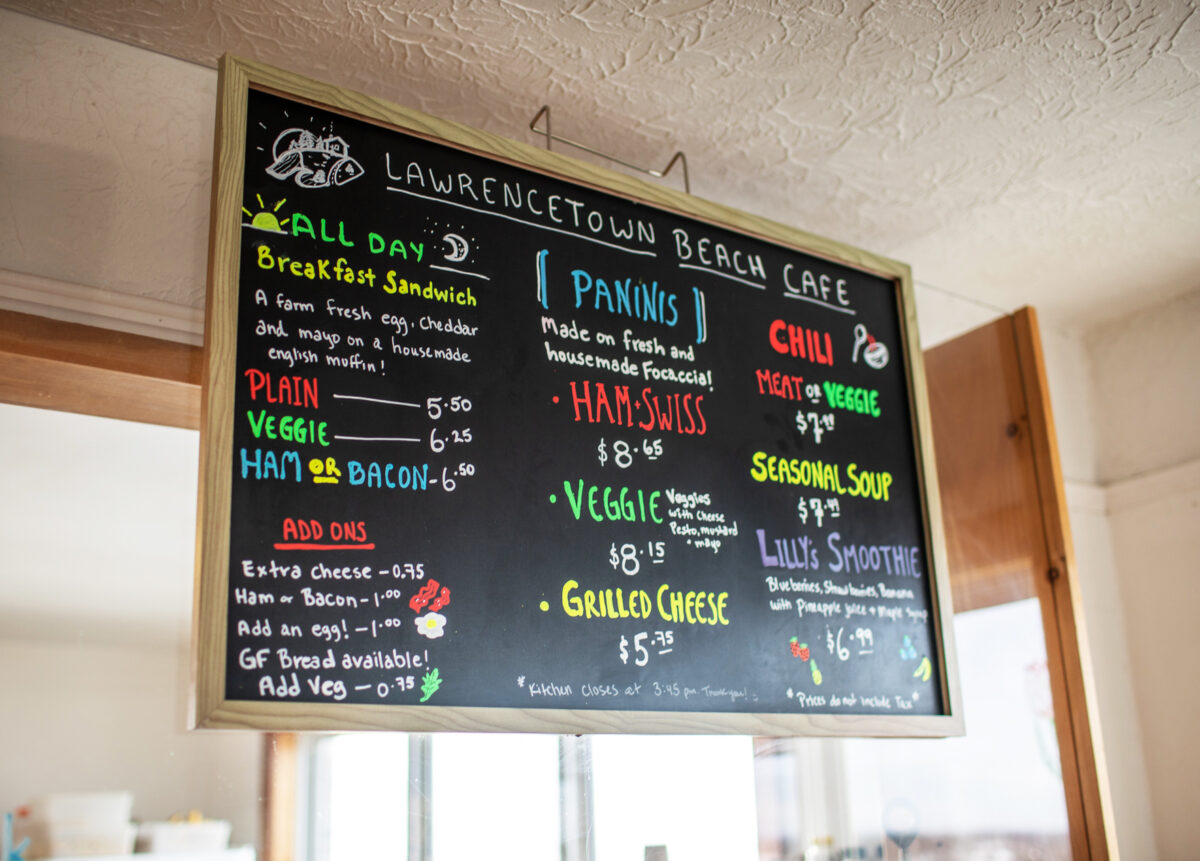 LAWRENCETOWN BEACH CAFE
ALL DAY
Breakfast Sandwich
A farm fresh egg, cheddar
and mayo on a housemade
english muffin!
PLAIN 5.50
VEGGIE 6.25
HAM OR BACON - 6.50
ADD ONS
Extra cheese - 0.75
Ham or Bacon - 1.00
Add an egg! - 1.00
GF Bread available!
Add Veg - 0.75
[PANINIS]
Made on fresh and
housemade Focaccia!
• HAM + SWISS
$8.65
• VEGGIE
Veggies
with cheese
Pesto, mustard
+ mayo
$8.15
• GRILLED CHEESE
$5.75
* Kitchen closes at 3:45 pm. Thank you! :)
CHILI
MEAT OR VEGGIE
$7.99
SEASONAL SOUP
$7.99
LILLY's SMOOTHIE
Blueberries, Strawberries, Banana
with Pineapple juice + Maple Syrup
$6.99
*Prices do not include Tax*